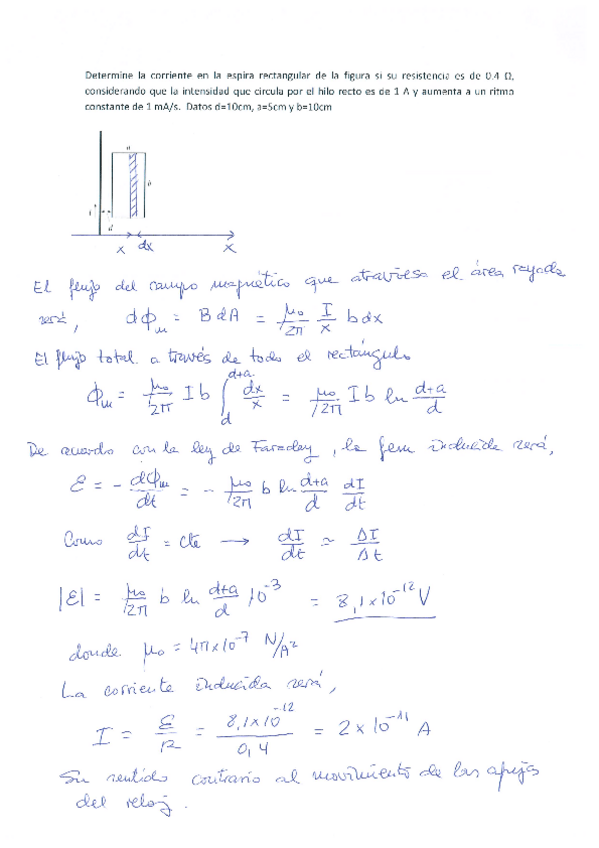 Determine la corriente en la espira rectangular de la figura si su resistencia es de 0.4 Ω,
considerando que la intensidad que circula por el hilo recto es de 1 A y aumenta a un ritmo
constante de 1 mA/s. Datos d=10cm, a=5cm y b=10cm
a
b
I
d
x dx x
El flujo del campo magnético que atraviesa el área rayada
será, dΦm = B dA = μ₀/2π I/x b dx
El flujo total a través de todo el rectángulo
Φm = μ₀/2π I b ∫_d^{d+a} dx/x = μ₀/2π I b ln (d+a)/d
De acuerdo con la ley de Faraday, la fem inducida será,
ε = - dΦm/dt = - μ₀/2π b ln (d+a)/d dI/dt
Como dI/dt = cte → dI/dt ≃ ΔI/Δt
|ε| = μ₀/2π b ln (d+a)/d 10⁻³ = 8,1×10⁻¹² V
donde μ₀ = 4π×10⁻⁷ N/A²
La corriente inducida será,
I = ε/R = 8,1×10⁻¹²/0,4 = 2×10⁻¹¹ A
Su sentido contrario al movimiento de las agujas
del reloj.